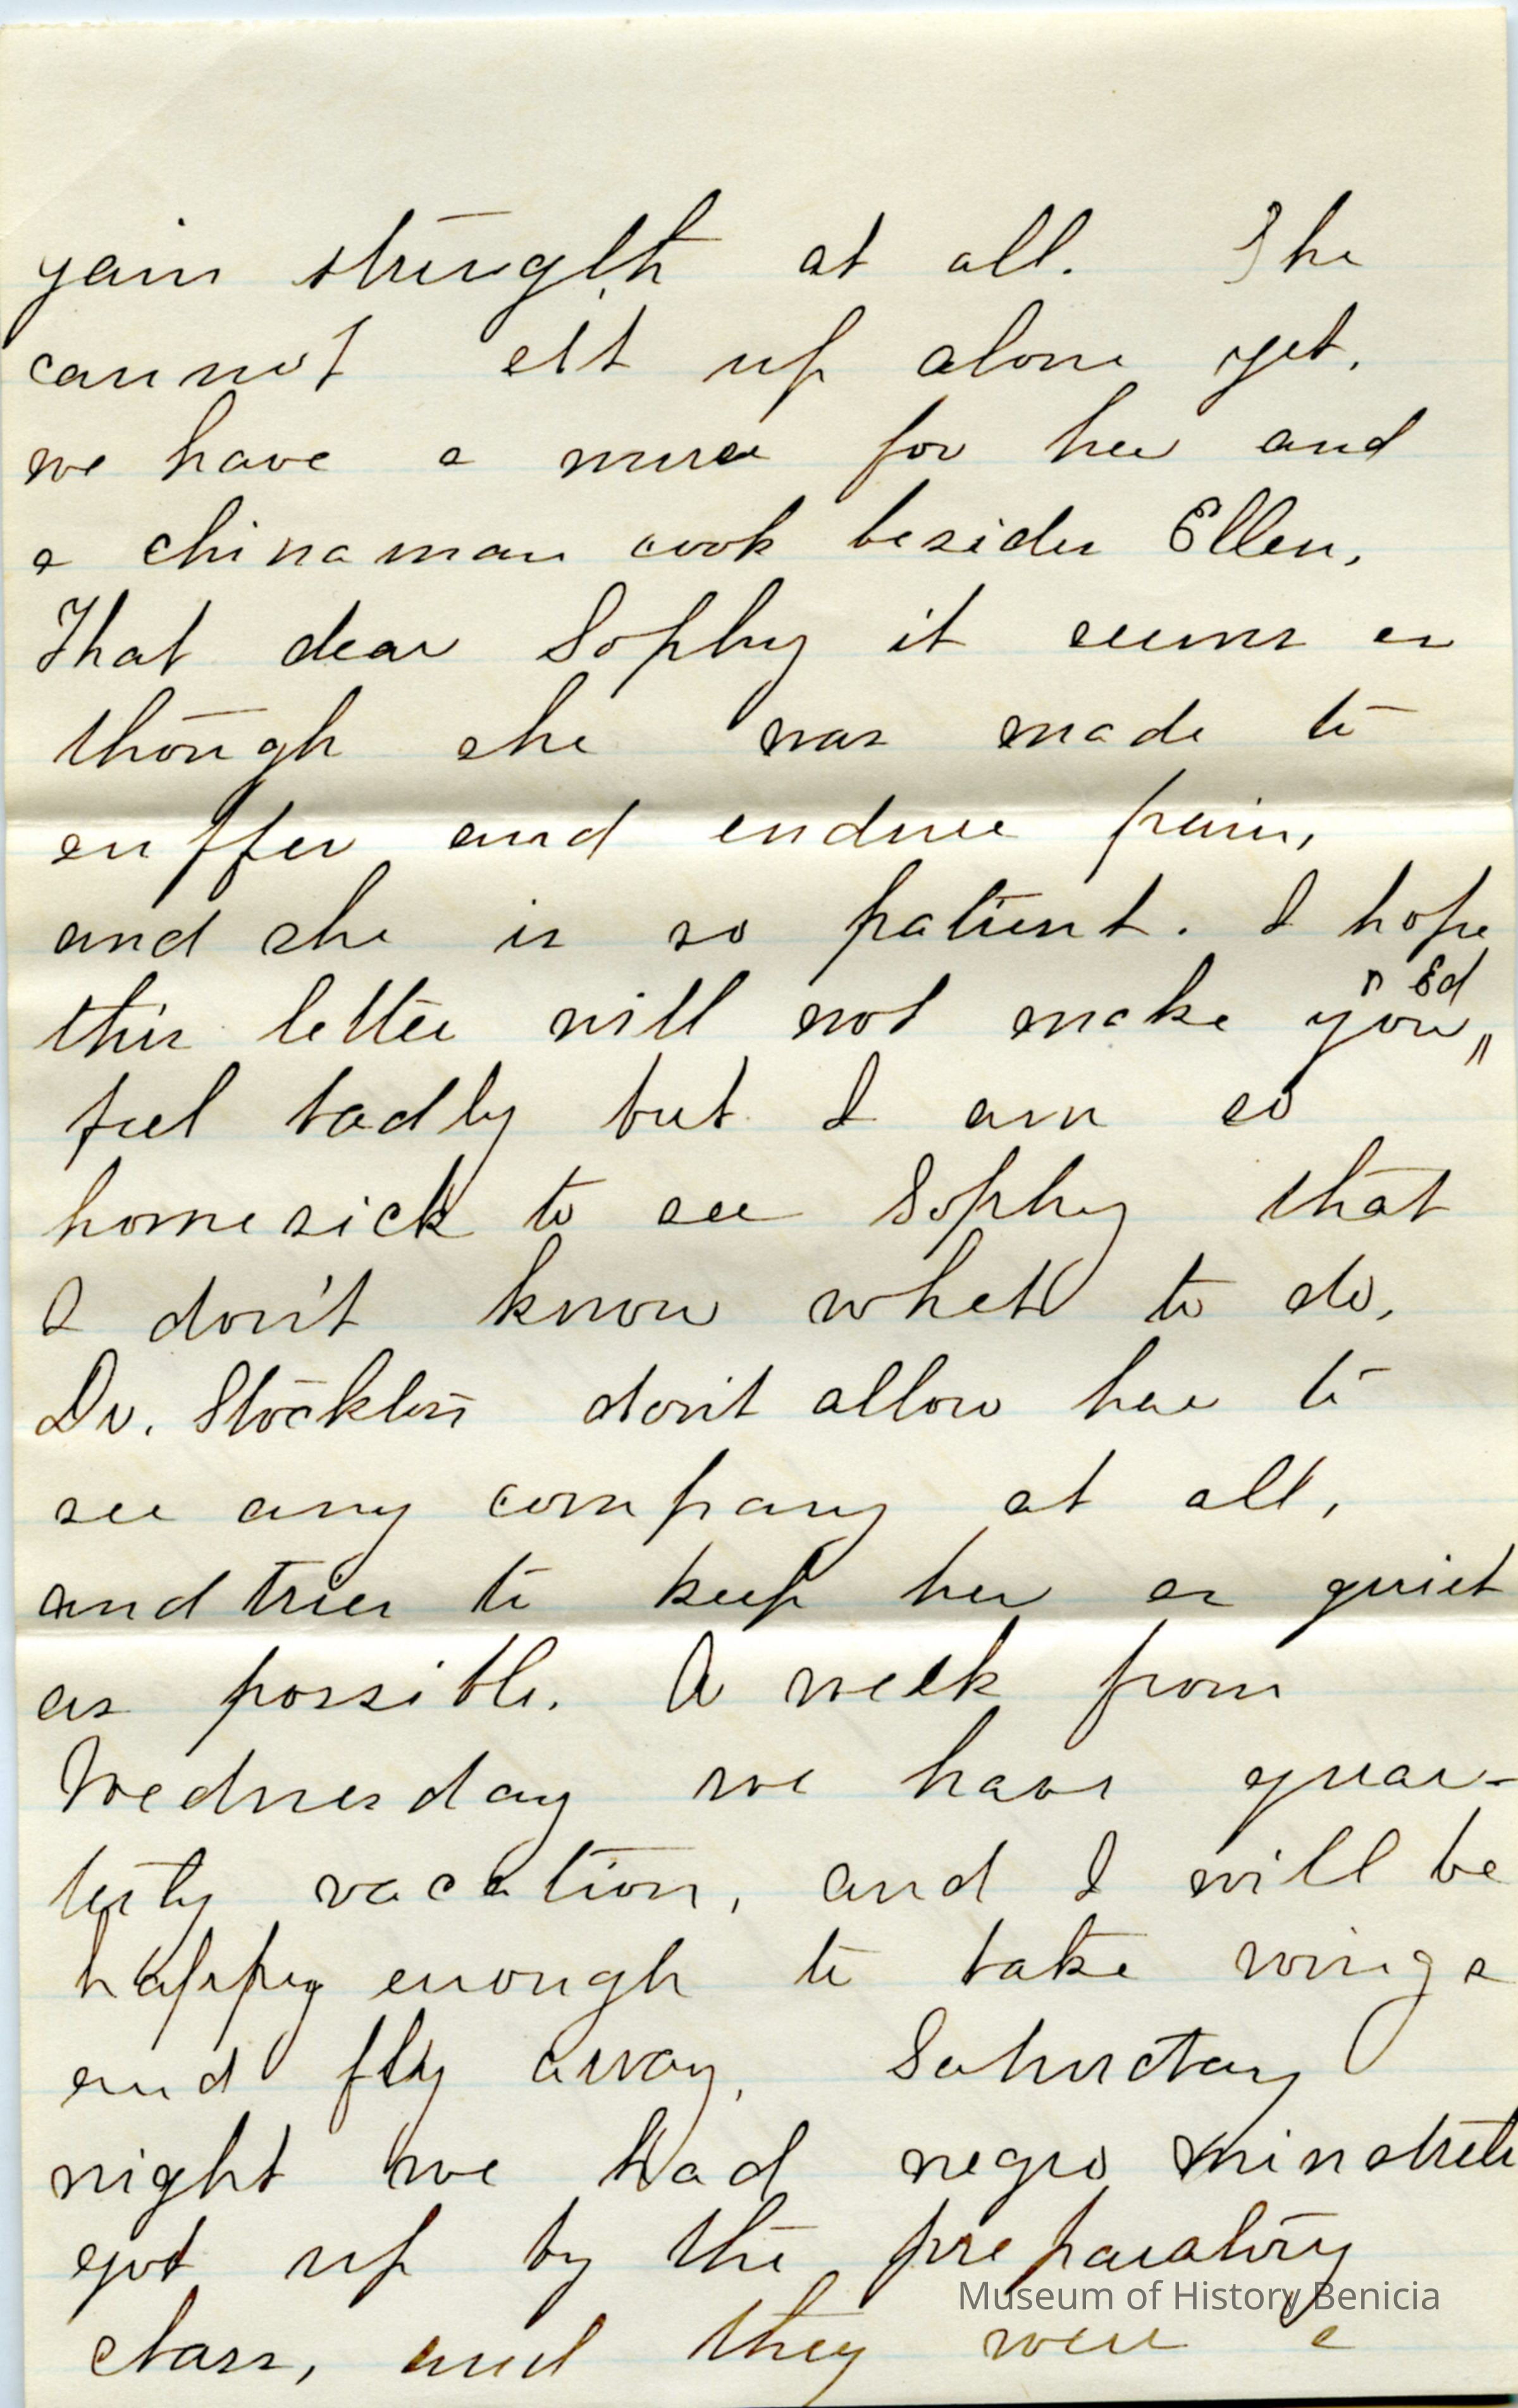 gain strength at all. She
cannot sit up alone yet.
we have a nurse for her and
a chinaman cook besides Ellen,
That dear Sophy it seems as
though she was made to
suffer and endure pain,
and she is so patient. I hope
this letter will not make you " n Ed
feel badly but I am so
homesick to see Sophy that
I don't know what to do,
Dr. Stockton don't allow her to
see any company at all,
and tries to keep her as quiet
as possible. A week from
Wednesday we have quar-
terly vacation, and I will be
happy enough to take wings
and fly away. Saturday
night we had negro minstrels
got up by the preparatory
class, and they were a
Museum of History Benicia